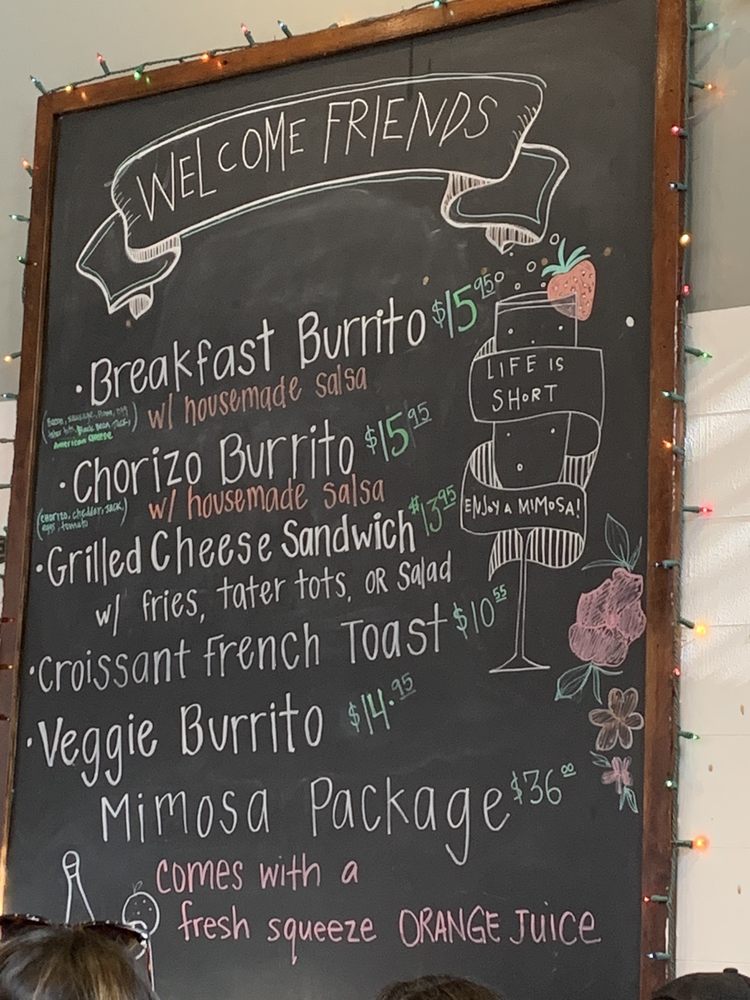 WELCOME FRIENDS
· Breakfast Burrito $15.95
w/ housemade salsa
American cheese
· Chorizo Burrito $15.95
w/ housemade salsa
(chorizo, cheddar, jack,
eggs, tomato
· Grilled Cheese Sandwich $13.95
w/ fries, tater tots, OR Salad
· Croissant French Toast $10.55
· Veggie Burrito $14.95
Mimosa Package $36.00
comes with a
fresh squeeze ORANGE JUICE
LIFE IS
SHORT
ENJOY A MIMOSA!